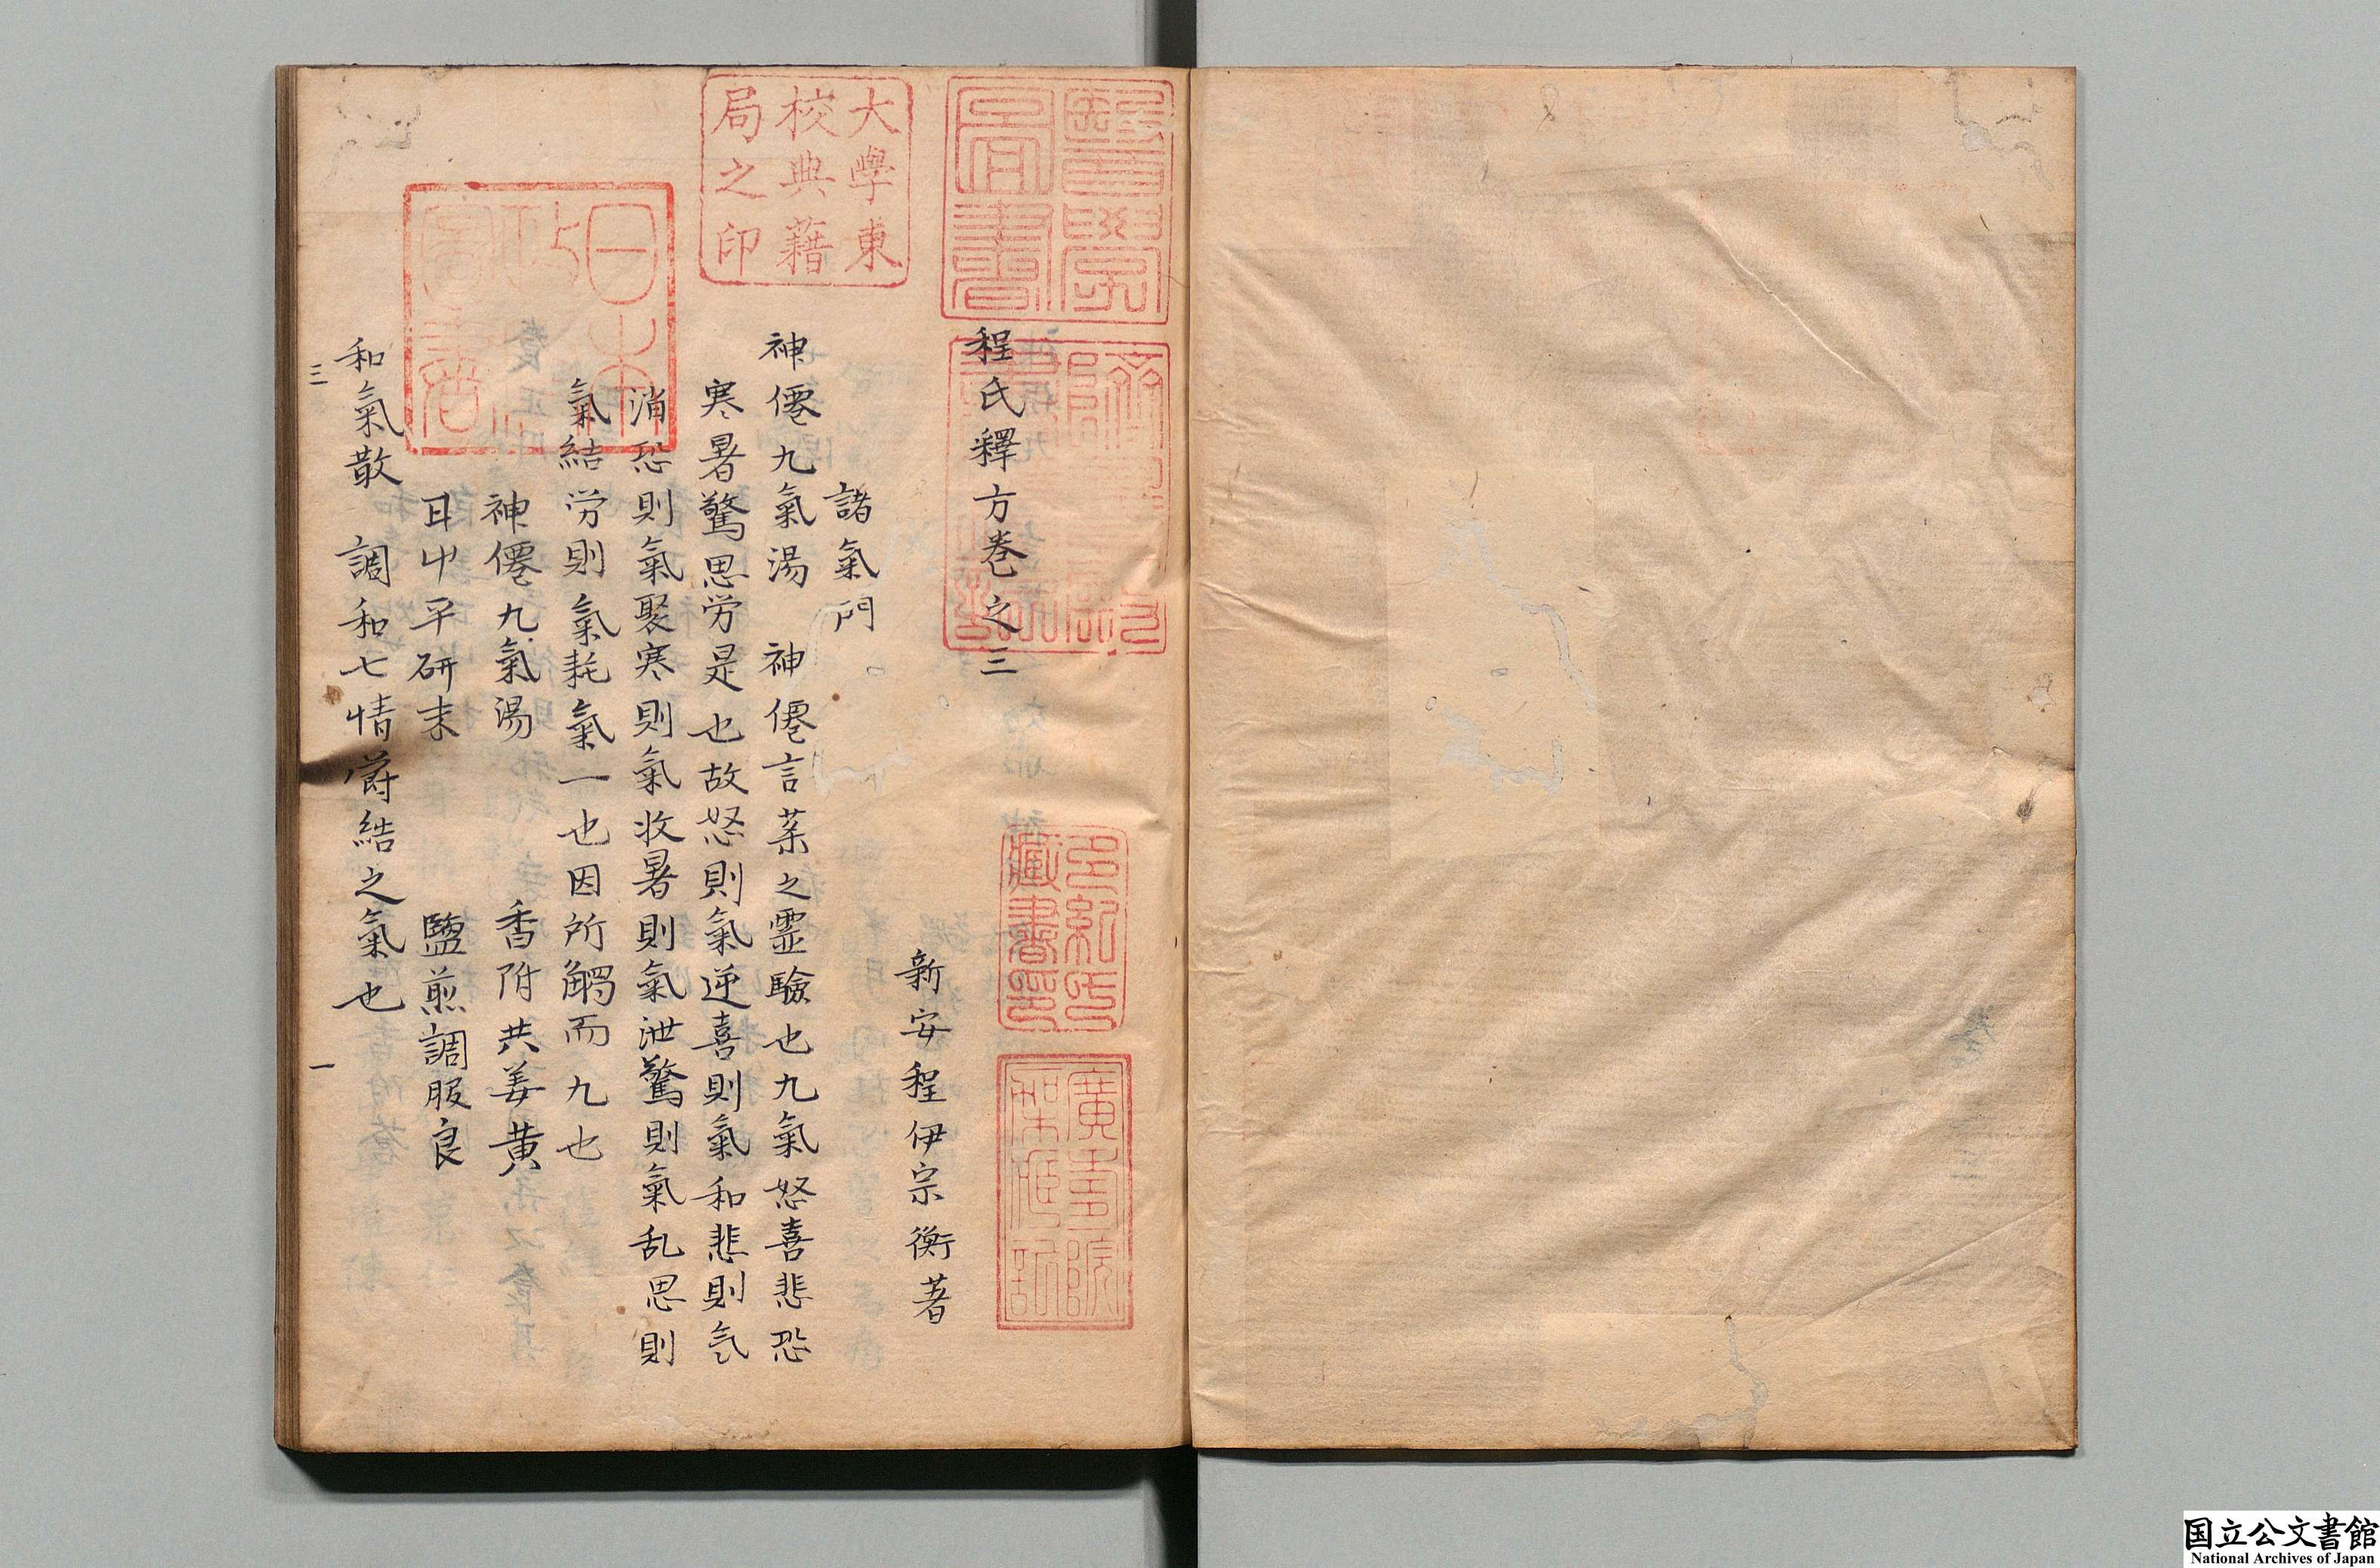 程氏釋方卷之三
新安程伊宗衡著
諸氣門
神僊九氣湯　神僊言薬之霊驗也九氣怒喜悲恐
寒暑驚思労是也故怒則氣逆喜則氣和悲則気
消恐則氣聚寒則氣收暑則氣泄驚則氣乱思則
氣結労則氣耗氣一也因所觸而九也
神僊九氣湯　香附共姜黄
平研末　鹽煎調服良
和氣散　調和七情欝結之氣也
三　一
醫學圖書
躋壽殿書籍記
多紀氏藏書印
廣壽院架藏記
大學東校典藉局之印
日本政府圖書
国立公文書館
National Archives of Japan